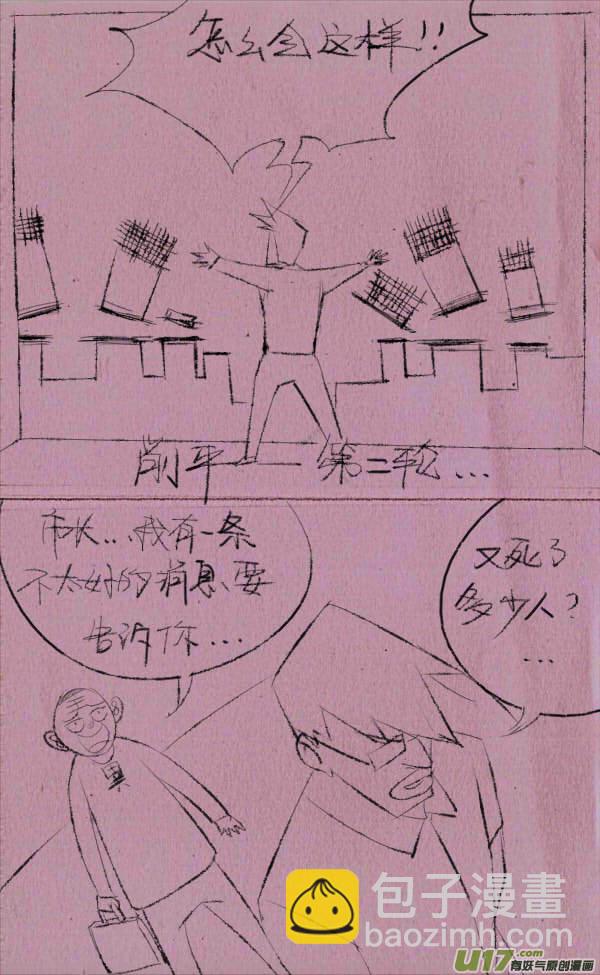 怎么会这样!!
削平——第二轮...
市长...我有一条
不太好的消息要
告诉你...
又死了
多少人?
...
包子漫畫
baozimh.com
U17.com
有妖气原创漫画